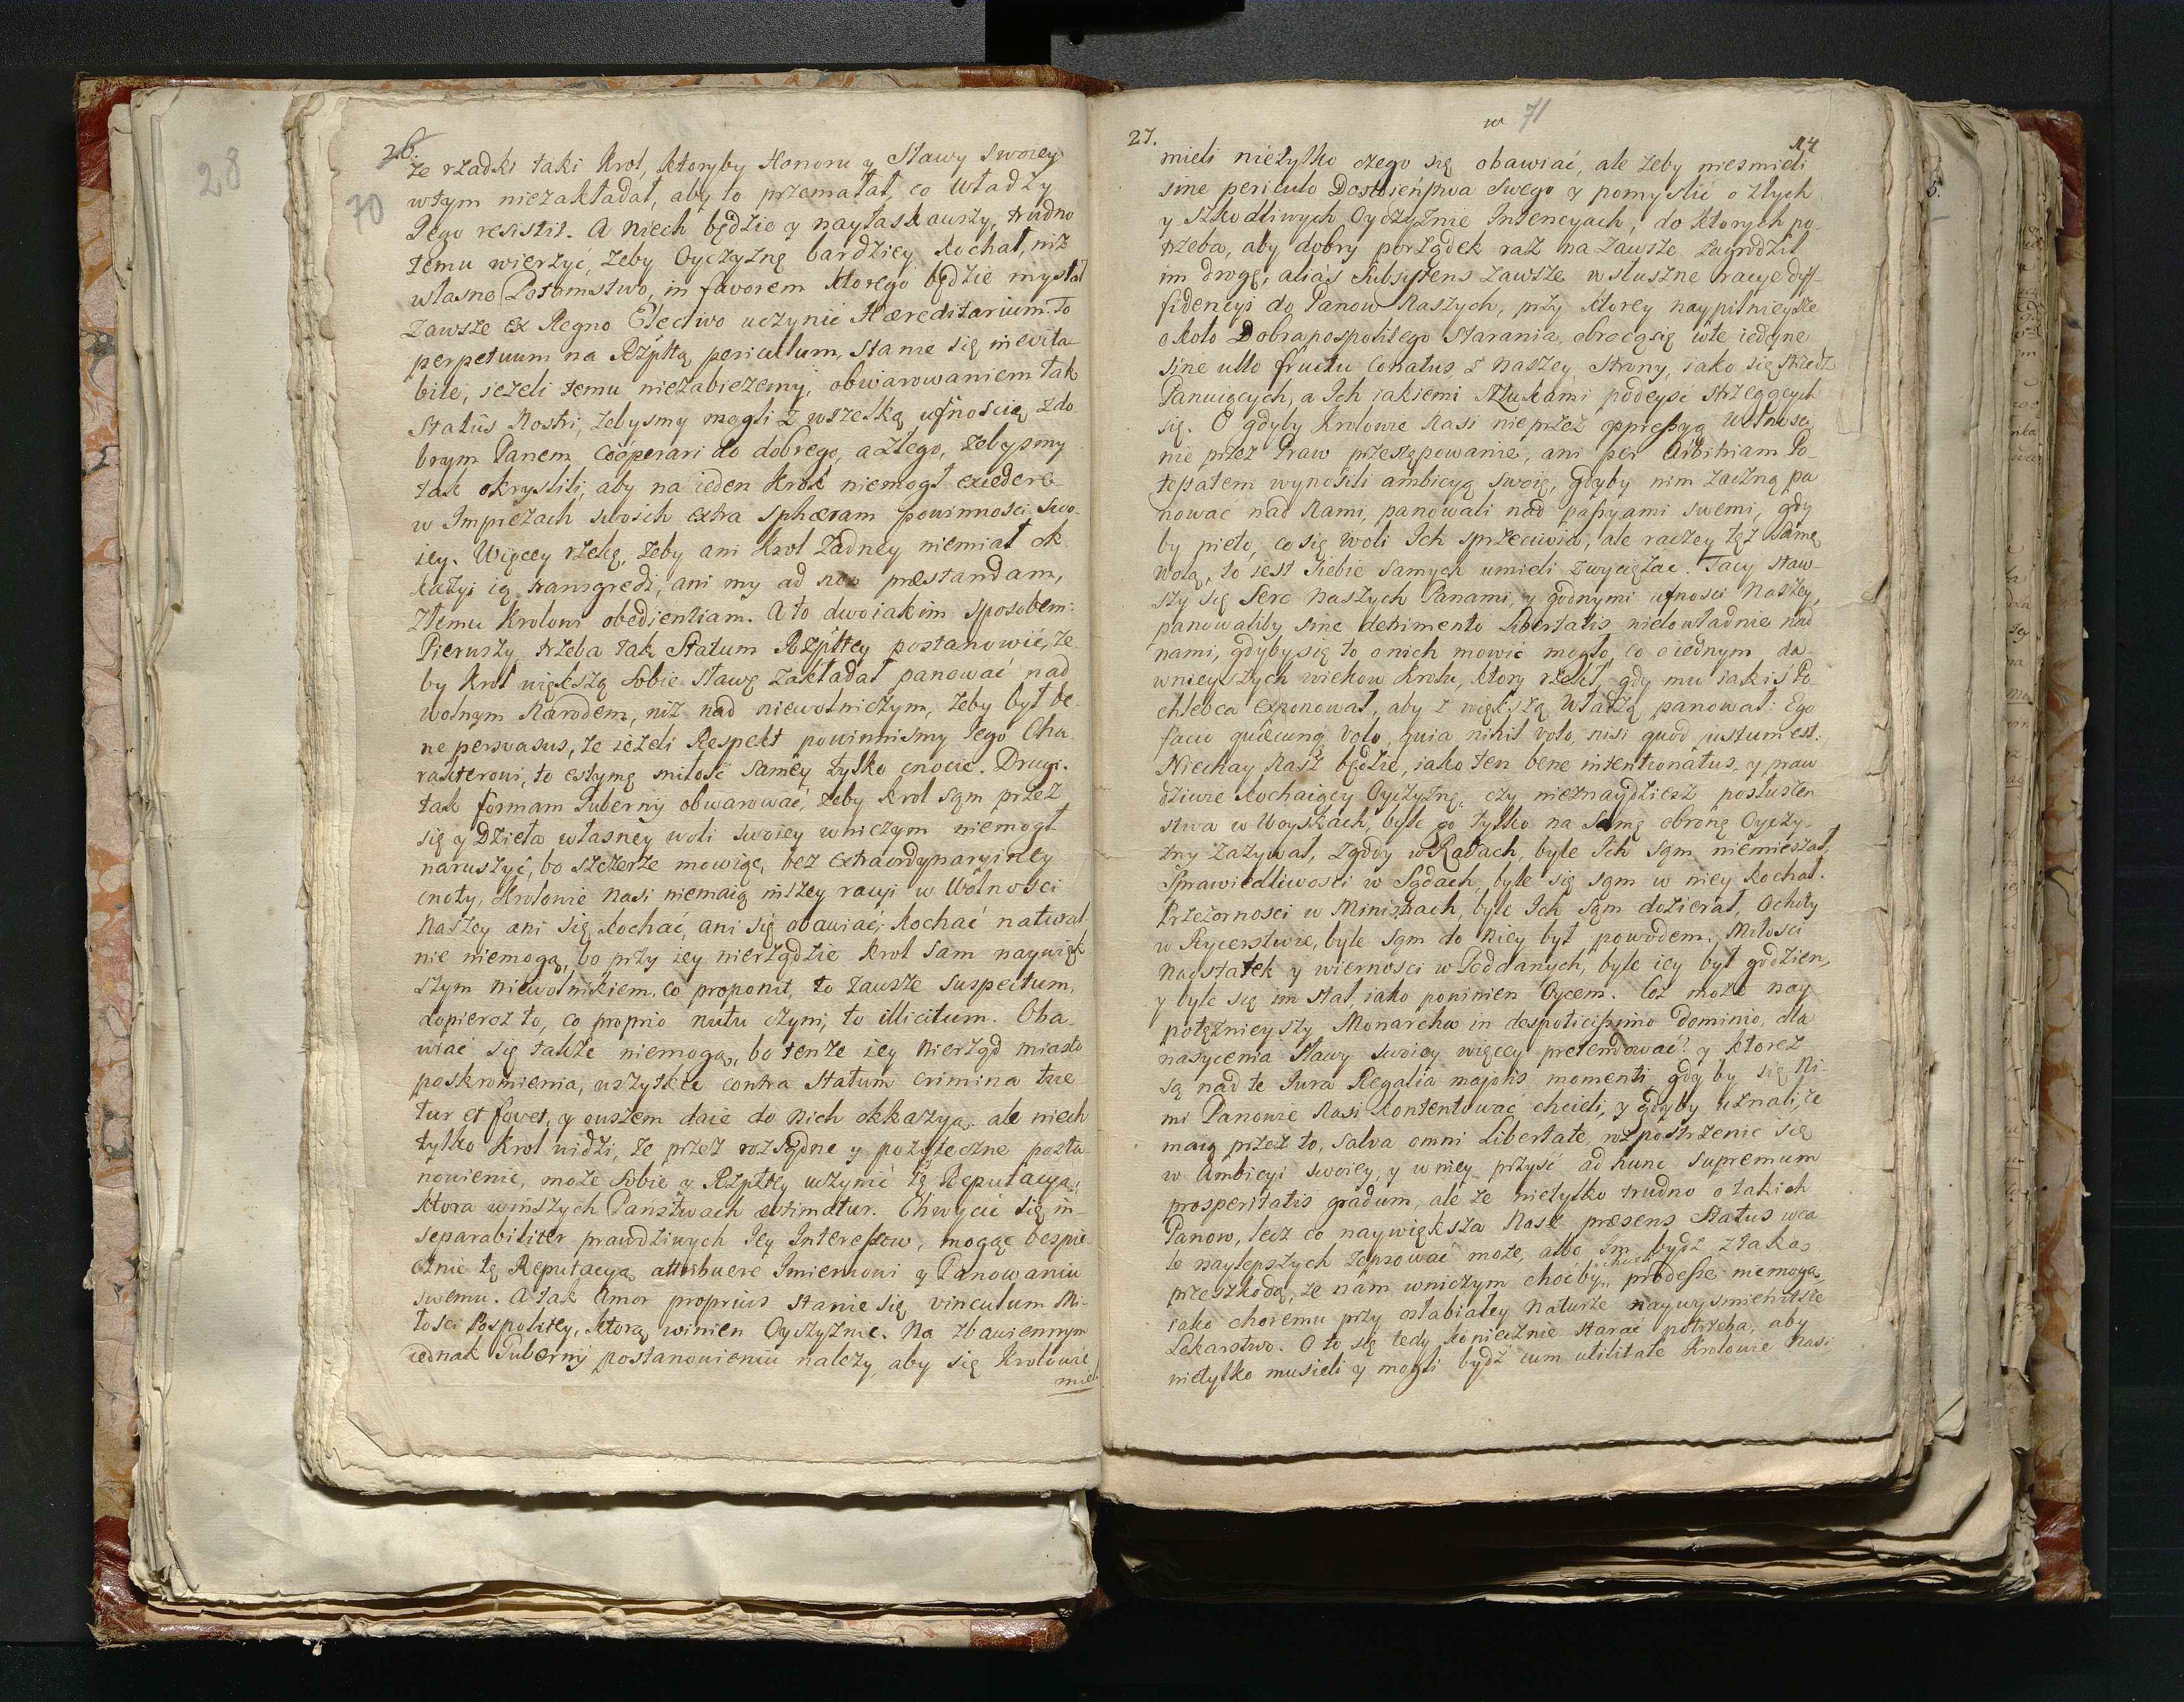 28
26.
70
że rzadki taki Krol, ktoryby Honoru y Sławy swoiey
wtym niezakładał, aby to przemałał, co Władzy
Jego resistit. A niech będzie y nayłaskawszy, trudno
temu wierzyć, żeby Oyczyznę bardziey kochał, niż
własne Potomstwo, in favorem ktorego będzie myslał
zawsze ex Regno Electivo uczynić Hæreditarium. To
perpetuum na Rzpltą periculum, stanie się inevita-
bile, ieżeli temu niezabieżemy, obwarowaniem tak
Statûs Nostri, żebysmy mogli z wszelką ufnoscią z do-
brym Panem cooperari do dobrego, a złego, żebysmy
tak okryslili, aby na ieden krok niemogł excedere
w Imprezach swoich extra sphæram powinnosci swo-
iey. Więcey rzekę, żeby ani Krol żadney niemiał ok-
kazyi ią transgredi, ani my ad non præstandam,
złemu Krolowi obedientiam. A to dwoiakim sposobem:
Pierwszy, trzeba tak Statum Rzpltey postanowić, że-
by Krol większą sobie sławę zakładał panować nad
wolnym Narodem, niż nad niewolniczym, żeby był be-
ne persvasus, że ieżeli Respekt powinnismy Jego Cha-
rakterowi, to estymę miłość samey tylko cnocie. Drugi.
tak formam Gubernij obwarować, żeby Krol sąm przez
się y Dzieła własney woli swoiey wniczym niemogł
naruszyć, bo szczerze mowiąc, bez extraordynaryiney
cnoty, Krolowie nasi niemaią inszey racyi w Wolnosci
Naszey ani się kochać, ani się obawiać; kochać natural-
nie niemogą, bo przy iey nierządzie Krol sam naywięk-
szym niewolnikiem, co proponit, to zawsze suspectum,
dopieroż to, co proprio nutu czyni, to illicitum. Oba-
wiać się także niemogą, bo tenże iey nierząd miasto
poskromienia, wszytkie contra Statum crimina tue-
tur et fovet, y owszem daie do nich okkazyą. ale niech
tylko Krol widzi, że przez rozsądne y pożyteczne posta-
nowienie, może sobie y Rzpltey uczynić tę Reputacyą,
ktora winszych Państwach æstimatur. Chwycić się in-
separabiliter prawdziwych Jey Interessow, mogąc bespie-
cznie tę Reputacyą attribuere Imieniowi y Panowaniu
swemu. A tak Amor proprius stanie się vinculum Mi-
łosci Pospolitey, ktorą winien Oyczyznie. Na zbawiennym
iednak Gubernij postanowieniu należy, aby się Krolowie
mie-
27.
71
14
mieli nietylko czego się obawiać, ale żeby niesmieli
sine periculo Dostoieństwa swego y pomyslić o złych
y szkodliwych Oyczyznie Intencyach, do ktorych po-
trzeba, aby dobry porządek raz na zawsze zagrodził
im drogę, aliàs subsistens zawsze w słuszne racye dyf-
fidencyi do Panow Naszych, przy ktorey naypilnieysze
około Dobra pospolitego starania, obrocą się wte iedyne
sine ullo fructu conatus, z naszey strony, iako się strzedz
Panuiących, a Ich iakiemi sztukami podeysć strzegących
się. O gdyby Krolowie Nasi nie przez oppressyą Wolnosci,
nie przez Praw przestępowanie, ani per Arbitriam Po-
testatem wynosili ambicyą swoię, gdyby nim zaczną pa-
nować nad Nami, panowali nad passyami swemi, gdy-
by nieto, co się woli Ich sprzeciwia, ale raczey tęż samę
Wolą, to iest siebie samych umieli zwyciężać. Tacy staw-
szy się Serc Naszych Panami, y godnymi ufnosci Naszey,
panowaliby sine detrimento Libertatis nielowładnie nad
nami, gdyby się to onich mowić mogło, co o iednym da-
wnieyszych wiekow Krolu, ktory rzekł, gdy mu iakiś Po-
chlebca exponował, aby z większą Władzą panował: Ego
facio quæcunq volo, quia nihil volo, nisi quod iustum est.
Niechay Nasz będzie, iako ten bene intentionatus, y praw-
dziwie kochaiący Oyczyznę, czy nieznaydziesz posłuszeń-
stwa w Woyskach, byle go tylko na samę obronę Oyczy-
zny zażywał, zgody w Radach, byle Ich sąm niemieszał,
Sprawiedliwosci w Sądach, byle się sąm w niey kochał.
Przezornosci w Ministrach, byle Ich sąm dozierał, Ochoty
w Rycerstwie, byle sąm do niey był powodem; Miłosci
Naostatek y wiernosci w Poddanych, byle iey był godzien,
y byle się im stał, iako powinien Oycem. Coż może nay-
potężnieyszy Monarcha in despoticissimo dominio, dla
nasycenia sławy swoiey więcey pretendować? y ktoreż
są nad te Jura Regalia majoris momenti, gdyby się Ni-
mi Panowie Nasi kontentować chcieli, y gdyby uznali, że
maią przez to, salva omni Libertate, rozpostrzenie się
w Ambicyi swoiey, y w niey przysć ad hunc supremum
prosperitatis gradum, ale że nietylko trudno o takich
Panow, lecz co naywiększa Nasz præsens Status wca-
le naylepszych zepsować może, albo Im bydź z taką
przeszkodą, że nam wniczym choćby chcieli prodesse niemogą,
iako choremu przy osłabiałey Naturze naywysmienitsze
Lekarstwo. O to się tedy koniecznie starać potrzeba, aby
nietylko musieli y mogli bydź cum utilitate Krolowie Nasi
5.